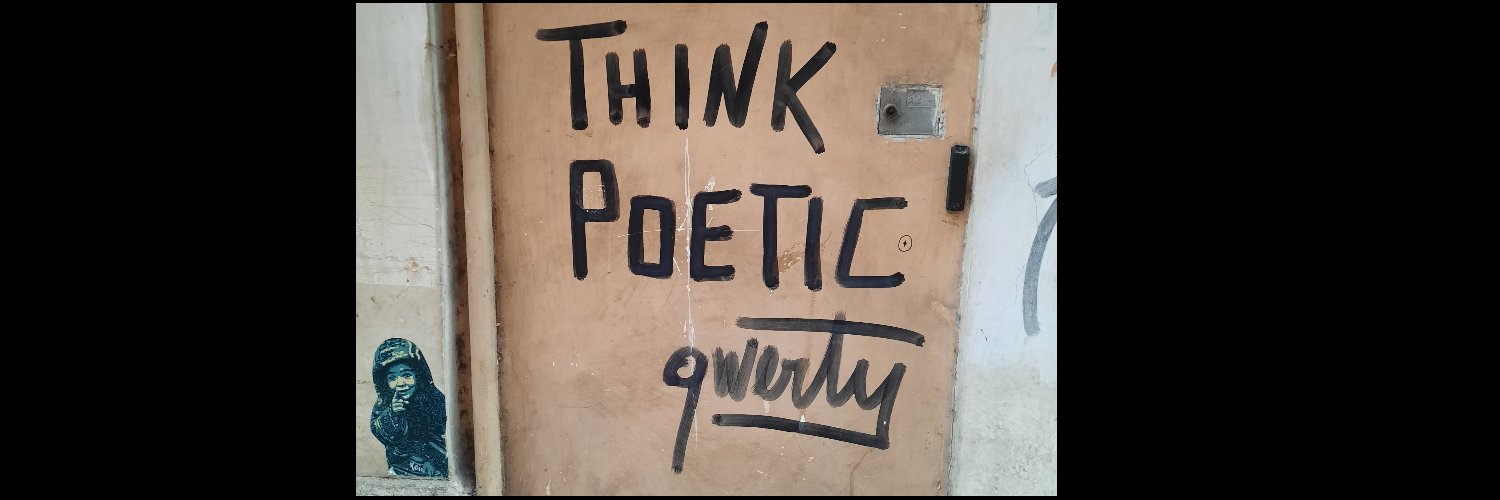 THINK
POETIC
qwerty